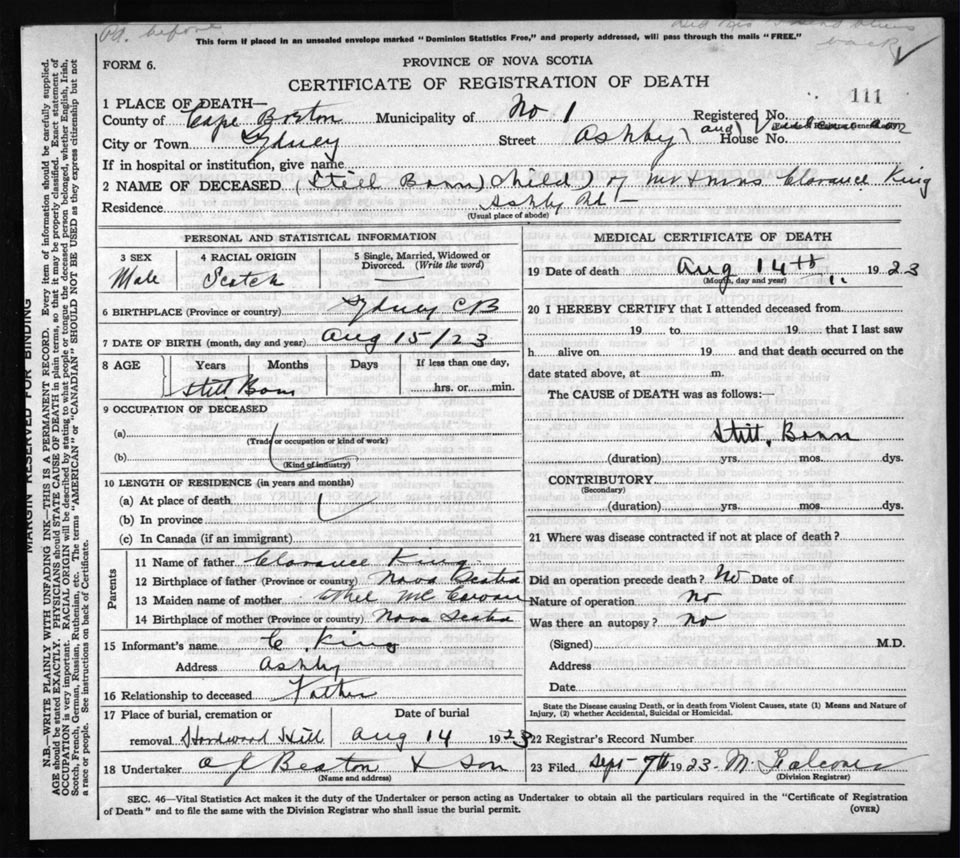 Bd. before
back ✓
This form if placed in an unsealed envelope marked "Dominion Statistics Free," and properly addressed, will pass through the mails "FREE."
FORM 6.
PROVINCE OF NOVA SCOTIA
CERTIFICATE OF REGISTRATION OF DEATH
111
1 PLACE OF DEATH—
County of Cape Breton Municipality of No 1 Registered No.
City or Town Sydney Street Ashby House No.
If in hospital or institution, give name
2 NAME OF DECEASED (Still Born) Child) of Mr & Mrs Clarance King
Residence Ashby Rd —
(Usual place of abode)
PERSONAL AND STATISTICAL INFORMATION
3 SEX 4 RACIAL ORIGIN 5 Single, Married, Widowed or Divorced. (Write the word)
Male Scotch —
6 BIRTHPLACE (Province or country) Sydney CB
7 DATE OF BIRTH (month, day and year) Aug 15/23
8 AGE Years Months Days If less than one day,
Still Born hrs. or min.
9 OCCUPATION OF DECEASED
(a)
(Trade or occupation or kind of work)
(b)
(Kind of industry)
10 LENGTH OF RESIDENCE (in years and months)
(a) At place of death
(b) In province
(c) In Canada (if an immigrant)
Parents
11 Name of father Clarance King
12 Birthplace of father (Province or country) Nova Scotia
13 Maiden name of mother Ethel
14 Birthplace of mother (Province or country) Nova Scotia
15 Informant's name C. King
Address Ashby
16 Relationship to deceased Father
17 Place of burial, cremation or Date of burial
removal Hardwood Hill Aug 14 1923
18 Undertaker A J Beaton & Son
(Name and address)
MEDICAL CERTIFICATE OF DEATH
19 Date of death Aug 14th 1923
(Month, day and year)
20 I HEREBY CERTIFY that I attended deceased from
19 to 19 that I last saw
h alive on 19 and that death occurred on the
date stated above, at m.
The CAUSE OF DEATH was as follows:—
Still, Born
(duration) yrs. mos. dys.
CONTRIBUTORY
(Secondary)
(duration) yrs. mos. dys.
21 Where was disease contracted if not at place of death?
Did an operation precede death? No Date of
Nature of operation no
Was there an autopsy? no
(Signed) M.D.
Address
Date
State the Disease causing Death, or in death from Violent Causes, state (1) Means and Nature of
Injury, (2) whether Accidental, Suicidal or Homicidal.
22 Registrar's Record Number
23 Filed Sept 7th 1923 M. Falconer
(Division Registrar)
SEC. 46—Vital Statistics Act makes it the duty of the Undertaker or person acting as Undertaker to obtain all the particulars required in the "Certificate of Registration
of Death" and to file the same with the Division Registrar who shall issue the burial permit. (OVER)
MARGIN RESERVED FOR BINDING
N.B.—WRITE PLAINLY WITH UNFADING INK—THIS IS A PERMANENT RECORD. Every item of information should be carefully supplied.
AGE should be stated EXACTLY. PHYSICIANS should STATE CAUSE OF DEATH in plain terms, so that it may be properly classified. Exact statement of
OCCUPATION is very important. RACIAL ORIGIN will be described by stating to what people or tongue the deceased person belonged, whether English, Irish,
Scotch, French, German, Russian, Ruthenian, etc. The terms "AMERICAN" or "CANADIAN" SHOULD NOT BE USED as they express citizenship but not
a race or people. See instructions on back of Certificate.